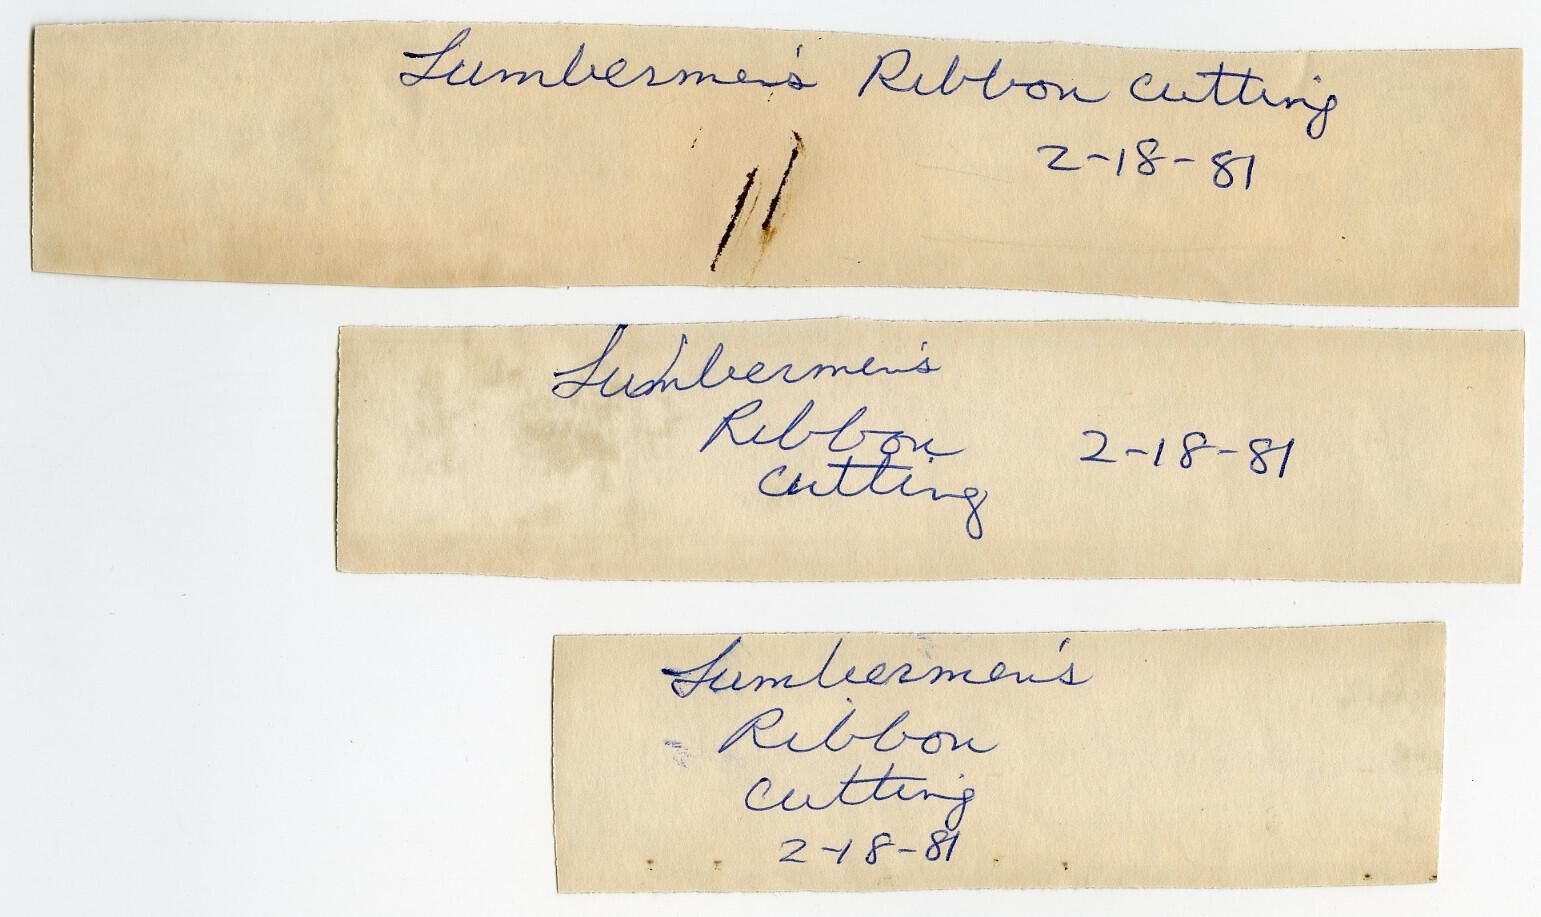 Lumbermen's Ribbon Cutting
2-18-81
Lumbermen's
Ribbon
2-18-81
Cutting
Lumbermen's
Ribbon
Cutting
2-18-81